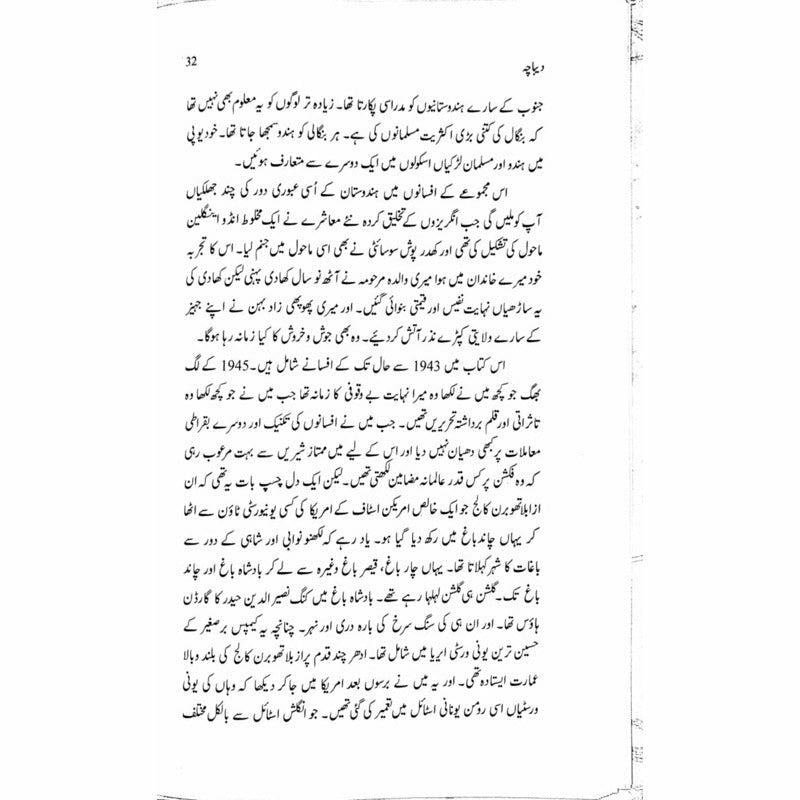 دیباچہ
32
جنوب کے سارے ہندوستانیوں کو مدراسی پکارتا تھا۔ زیادہ تر لوگوں کو یہ معلوم بھی نہیں تھا
کہ بنگال کی کتنی بڑی اکثریت مسلمانوں کی ہے۔ ہر بنگالی کو ہندو سمجھا جاتا تھا۔ خود یوپی
میں ہندو اور مسلمان لڑکیاں اسکولوں میں ایک دوسرے سے متعارف ہوئیں۔
اس مجموعے کے افسانوں میں ہندوستان کے اُسی عبوری دور کی چند جھلکیاں
آپ کو ملیں گی جب انگریزوں کے تخلیق کردہ نئے معاشرے نے ایک مخلوط انڈو اینگلین
ماحول کی تشکیل کی تھی اور کھدر پوش سوسائٹی نے بھی اسی ماحول میں جنم لیا۔ اس کا تجربہ
خود میرے خاندان میں ہوا میری والدہ مرحومہ نے آٹھ نو سال کھادی پہنی لیکن کھادی کی
یہ ساڑھیاں نہایت نفیس اور قیمتی بنوائی گئیں۔ اور میری پھوپھی زاد بہن نے اپنے جہیز
کے سارے ولایتی کپڑے نذر آتش کر دیئے۔ وہ بھی جوش و خروش کا کیا زمانہ رہا ہوگا۔
اس کتاب میں 1943 سے حال تک کے افسانے شامل ہیں۔ 1945 کے لگ
بھگ جو کچھ میں نے لکھا وہ میرا نہایت بے وقوفی کا زمانہ تھا جب میں نے جو کچھ لکھا وہ
تاثراتی اور قلم برداشتہ تحریریں تھیں۔ جب میں نے افسانوں کی تکنیک اور دوسرے بقراطی
معاملات پر کبھی دھیان نہیں دیا اور اس کے لیے میں ممتاز شیریں سے بہت مرعوب رہی
کہ وہ فکشن پر کس قدر عالمانہ مضامین لکھتی تھیں۔ لیکن ایک دل چسپ بات یہ تھی کہ ان
ازابلا تھوبرن کالج جو ایک خالص امریکن اسٹاف کے امریکا کی کسی یونیورسٹی ٹاؤن سے اٹھا
کر یہاں چاند باغ میں رکھ دیا گیا ہو۔ یاد رہے کہ لکھنو نوابی اور شاہی کے دور سے
باغات کا شہر کہلاتا تھا۔ یہاں چار باغ، قیصر باغ وغیرہ سے لے کر بادشاہ باغ اور چاند
باغ تک۔ گلشن ہی گلشن لہلہا رہے تھے۔ بادشاہ باغ میں کنگ نصیر الدین حیدر کا گارڈن
ہاؤس تھا۔ اور ان ہی کی سنگ سرخ کی بارہ دری اور نہر۔ چنانچہ یہ کیمپس برصغیر کے
حسین ترین یونی ورسٹی ایریا میں شامل تھا۔ ادھر چند قدم پر ازابلا تھوبرن کالج کی بلند و بالا
عمارت ایستادہ تھی۔ اور یہ میں نے برسوں بعد امریکا میں جا کر دیکھا کہ وہاں کی یونی
ورسٹیاں اسی رومن یونانی اسٹائل میں تعمیر کی گئی تھیں۔ جو انگلش اسٹائل سے بالکل مختلف